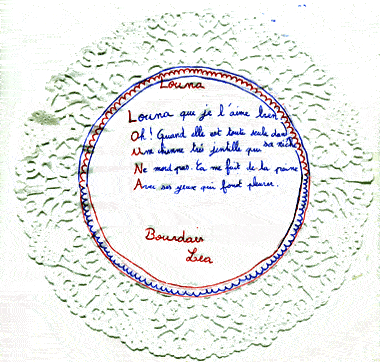 Louna
Louna que je l'aime bien
Oh! Quand elle est toute seule dans sa niche
Une chienne très jentille qui
Ne mord pas. Ca me fait de la peine
Avec ses yeux qui font pleurer.
Bourdais
Léa